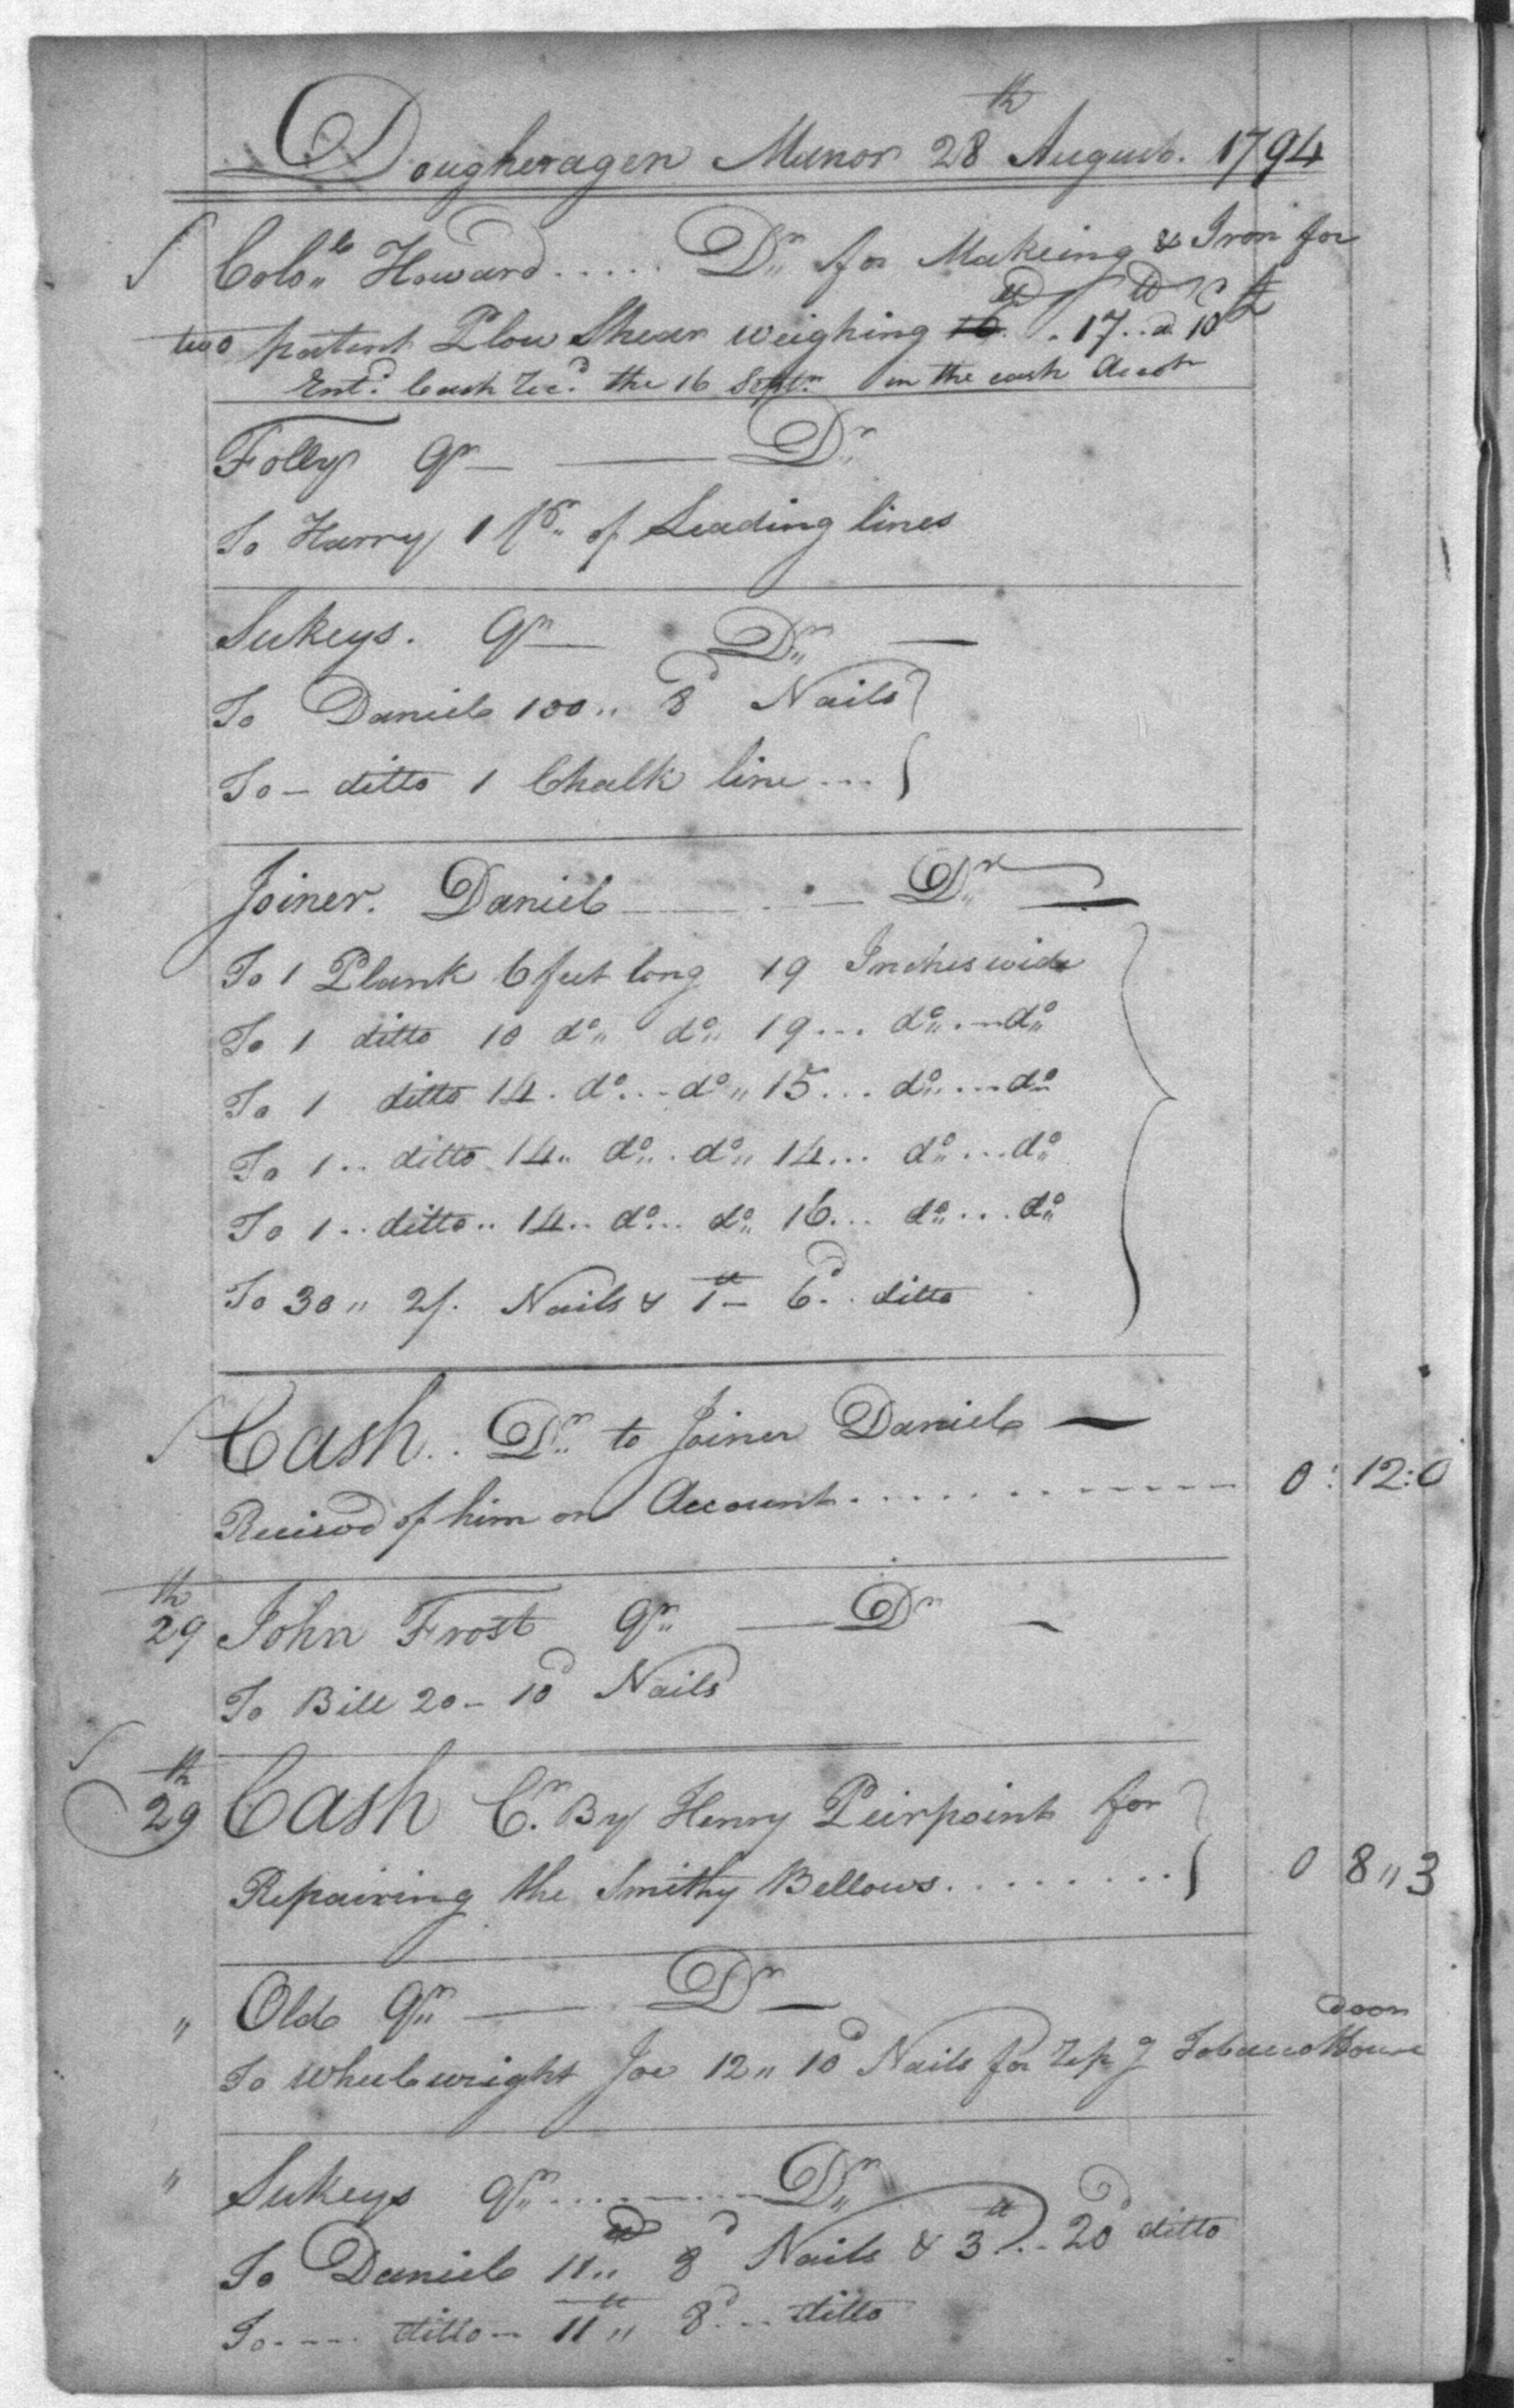 Dougheragen Manor 28th August. 1794
Colo,,l Howard ..... Dr,, for Makeing & Iron for
two patent Plow Shear weighing 16 . 17 .. a 10d
Entd. Cash rec.d the 16 Septr.. in the cash Accot
Folly Qr — —— Dr,,
To Harry 1 pr.. of Leading lines
Sukeys. Qr — Dr,, —
To Daniel 100 ,, 8d Nails
To – ditto 1 Chalk line ...
Joiner. Daniel —— — Dr,, —
To 1 Plank 6 feet long 19 Inches wide
To 1 ditto 10 do,, do,, 19 ... do,, .. do,,
To 1 ditto 14. do ... do,, 15 ... do,, ... do
To 1 .. ditto 14 ,, do,, . do,, 14 ... do,, ... do,,
To 1 .. ditto .. 14 .. do ... do,, 16 ... do,, ... do,,
To 30 ,, 2/. Nails & 1tt – 6d. . ditto
Cash . . Dr.. to Joiner Daniel —
Recieved of him on Account . . . . . . . . . . 0 : 12 : 0
29th John Frost Qr,, — Dr,, –
To Bill 20 – 10d Nails
29th Cash Cr. By Henry Peirpoint for
Repairing the Smithy Bellows . . . . . . . . 0 8 ,, 3
,, Old Qr,, —— Dr —
door
To Wheelwright Joe 12 ,, 10d Nails for rep g Tobacco House
,, Sukeys Qr,, . . . . . . Dr,,
To Daniel 11 ,, 8d Nails & 3tt . . 20d ditto
To .... ditto – 11tt ,, 8d . .. ditto